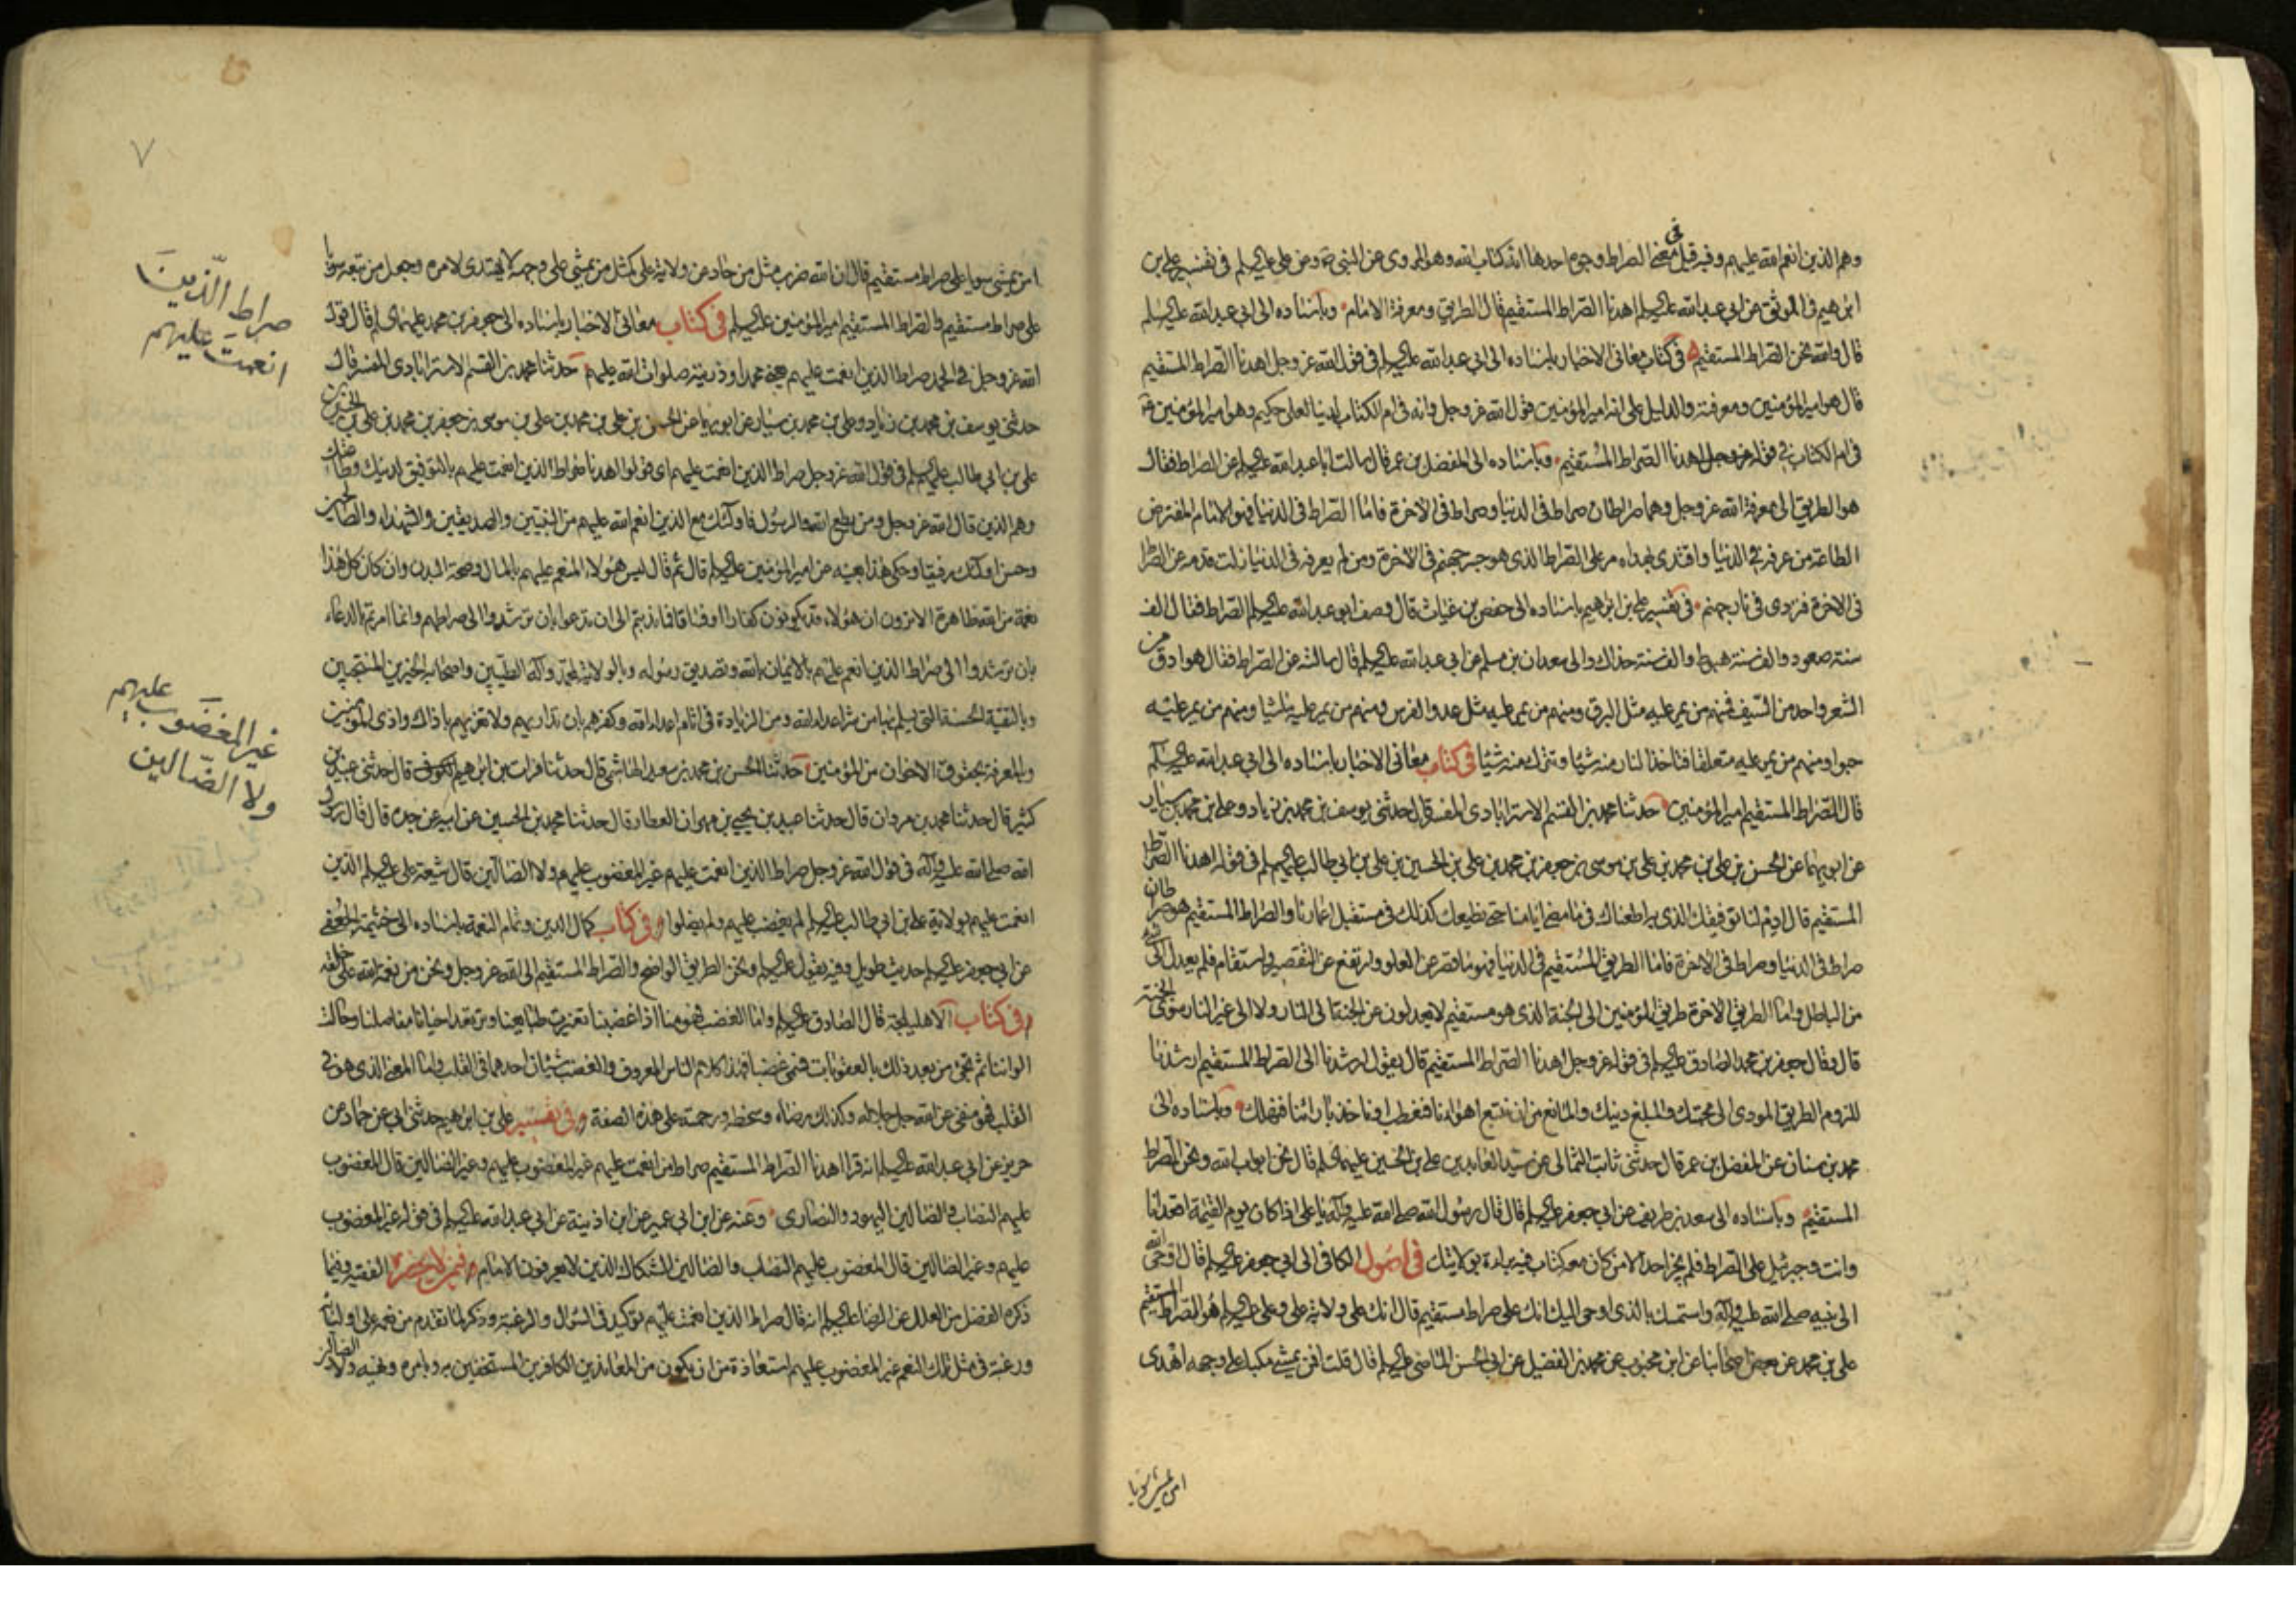 وهم الذين انعم الله عليهم وفيه قيل في معنى الصراط وجوه احدها انه كتاب الله وهو المروى عن النبي ص وعن على عليه السلم في تفسير على بن
ابرهيم في الموثق عن ابي عبد الله عليه السلم اهدنا الصراط المستقيم قال الطريق ومعرفة الامام وباسناده الى ابي عبد الله عليه السلم
قال والله نحن الصراط المستقيم في كتاب معانى الاخبار باسناده الى ابي عبد الله عليه السلم في قول الله عز وجل اهدنا الصراط المستقيم
قال هو امير المؤمنين ومعرفته والدليل على انه امير المؤمنين قول الله عز وجل وانه في ام الكتاب لدينا لعلى حكيم وهو امير المؤمنين ع
في ام الكتاب في قوله عز وجل اهدنا الصراط المستقيم وباسناده الى المفضل بن عمر قال سالت ابا عبد الله عليه السلم عن الصراط فقال
هو الطريق الى معرفة الله عز وجل وهما صراطان صراط في الدنيا وصراط في الاخرة فاما الصراط في الدنيا فهو الامام المفترض
الطاعة من عرفه في الدنيا واقتدى بهداه مر على الصراط الذى هو جسر جهنم في الاخرة ومن لم يعرفه في الدنيا زلت قدمه عن الصراط
في الاخرة فتردى في نار جهنم في تفسير على بن ابراهيم باسناده الى حفص بن غياث قال وصف ابو عبد الله عليه السلم الصراط فقال الف
سنة صعود والف سنة هبوط والف سنة حذاك والى سعدان بن مسلم عن ابي عبد الله عليه السلم قال سالته عن الصراط فقال هو ادق من
الشعر واحد من السيف فمنهم من يمر عليه مثل البرق ومنهم من يمر عليه مثل عدو الفرس ومنهم من يمر عليه ماشيا ومنهم من يمر عليه
حبوا ومنهم من يمر عليه متعلقا فتاخذ النار منه شيئا وتترك منه شيئا في كتاب معانى الاخبار باسناده الى ابي عبد الله عليه السلم
قال الصراط المستقيم امير المؤمنين حدثنا محمد بن القسم الاسترابادى المفسر قال حدثنى يوسف بن محمد بن زياد وعلى بن محمد بن سيار
عن ابويهما عن الحسن بن على بن محمد بن على بن موسى بن جعفر بن محمد بن على بن الحسين بن على بن ابي طالب عليهم السلم في قوله اهدنا الصراط
المستقيم قال ادم لنا توفيقك الذى به اطعناك في ما مضى ايامنا حتى نطيعك كذلك في مستقبل اعمارنا والصراط المستقيم هو صراطان
صراط في الدنيا وصراط في الاخرة فاما الطريق المستقيم في الدنيا فهو ما قصر عن الغلو وارتفع عن التقصير واستقام فلم يعدل الى شئ
من الباطل واما الطريق الاخرة طريق المؤمنين الى الجنة الذى هو مستقيم لا يعدلون عن الجنة الى النار ولا الى غير النار سوى الجنة
قال وقال جعفر بن محمد الصادق عليه السلم في قوله عز وجل اهدنا الصراط المستقيم قال يقول ارشدنا الى الصراط المستقيم ارشدنا
للزوم الطريق المودى الى محبتك والمبلغ دينك والمانع من ان نتبع اهوائنا فنعطب او ناخذ بارائنا فنهلك وباسناده الى
محمد بن سنان عن المفضل بن عمر قال حدثنى ثابت الثمالى عن سيد العابدين على بن الحسين عليهما السلم قال نحن ابواب الله ونحن الصراط
المستقيم وباسناده الى سعد بن طريف عن ابي جعفر عليه السلم قال قال رسول الله صلى الله عليه وآله يا على اذا كان يوم القيمة اقعد انا
وانت وجبرئيل على الصراط فلم يجز احد الا من كان معه كتاب فيه براءة بولايتك في اصول الكافى الى ابي جعفر عليه السلم قال اوحى الله
الى نبيه صلى الله عليه وآله واستمسك بالذى اوحى اليك انك على صراط مستقيم قال انك على ولاية على وعلى عليه السلم هو الصراط المستقيم
على بن محمد عن بعض اصحابنا عن ابن محبوب عن محمد بن الفضيل عن ابي الحسن الماضى عليه السلم قال قلت افمن يمشى مكبا على وجهه اهدى
امن يمشى سويا
٧
امن يمشى سويا على صراط مستقيم قال ان الله ضرب مثل من حاد عن ولاية على كمثل من يمشى على وجهه لا يهتدى لامره وجعل من تبعه سويا
على صراط مستقيم والصراط المستقيم امير المؤمنين عليه السلم في كتاب معانى الاخبار باسناده الى جعفر بن محمد عليهما السلم قال قول
الله عز وجل في الحمد صراط الذين انعمت عليهم يعنى محمدا وذريته صلوات الله عليهم حدثنا محمد بن القسم الاسترابادى المفسر قال
حدثنى يوسف بن محمد بن زياد وعلى بن محمد بن سيار عن ابويهما عن الحسن بن على بن محمد بن على بن موسى بن جعفر بن محمد بن على بن الحسين بن
على بن ابي طالب عليهم السلم في قول الله عز وجل صراط الذين انعمت عليهم اى قولوا اهدنا صراط الذين انعمت عليهم بالتوفيق لدينك وطاعتك
وهم الذين قال الله عز وجل ومن يطع الله والرسول فاولئك مع الذين انعم الله عليهم من النبيين والصديقين والشهداء والصالحين
وحسن اولئك رفيقا وحكى هذا بعينه عن امير المؤمنين عليه السلم قال ثم قال ليس هؤلاء المنعم عليهم بالمال وصحة البدن وان كان كل هذا
نعمة من الله ظاهرة الا ترون ان هؤلاء قد يكونون كفارا او فساقا فما ندبتم الى ان تدعوا بان ترشدوا الى صراطهم وانما امرتم بالدعاء
بان ترشدوا الى صراط الذين انعم عليهم بالايمان بالله وتصديق رسوله وبالولاية لمحمد وآله الطيبين واصحابه الخيرين المنتجبين
وبالتقية الحسنة التى يسلم بها من شر اعداء الله ومن الزيادة في اثام اعداء الله وكفرهم بان تداريهم ولا تغريهم باذاك واذى المؤمنين
وبالمعرفة بحقوق الاخوان من المؤمنين حدثنا الحسن بن محمد بن سعيد الهاشمى قال حدثنا فرات بن ابرهيم الكوفى قال حدثنى عبيد بن
كثير قال حدثنا محمد بن مروان قال حدثنا عبيد بن يحيى بن مهران العطار قال حدثنا محمد بن الحسين عن ابيه عن جده قال قال رسول
الله صلى الله عليه وآله في قول الله عز وجل صراط الذين انعمت عليهم غير المغضوب عليهم ولا الضالين قال شيعة على عليه السلم الذين
انعمت عليهم بولاية على بن ابي طالب عليه السلم لم يغضب عليهم ولم يضلوا وفي كتاب كمال الدين وتمام النعمة باسناده الى خثيمة الجعفى
عن ابي جعفر عليه السلم حديث طويل وفيه يقول عليه السلم ونحن الطريق الواضح والصراط المستقيم الى الله عز وجل ونحن من نعمة الله على خلقه
وفي كتاب الاهليلجة قال الصادق عليه السلم واما الغضب فهو منا اذا غضبنا تغيرت طبايعنا وترتعد احيانا مفاصلنا وحالت
الواننا ثم نجئ من بعد ذلك بالعقوبات فسمى غضبا فهذا كلام الناس المعروف والغضب شيئان احدهما في القلب واما المعنى الذى هو في
القلب فهو منفى عن الله جل جلاله وكذلك رضاه وسخطه ورحمته على هذه الصفة وفي تفسير على بن ابرهيم حدثنى ابي عن حماد عن
حريز عن ابي عبد الله عليه السلم انه قرا اهدنا الصراط المستقيم صراط من انعمت عليهم غير المغضوب عليهم وغير الضالين قال المغضوب
عليهم النصاب والضالين اليهود والنصارى وعنه عن ابن ابي عمير عن ابن اذينة عن ابي عبد الله عليه السلم في قوله غير المغضوب
عليهم وغير الضالين قال المغضوب عليهم النصاب والضالين الشكاك الذين لا يعرفون الامام وفي من لا يحضره الفقيه وفيما
ذكره الفضل من العلل عن الرضا عليه السلم انه قال صراط الذين انعمت عليهم توكيد في السؤال والرغبة وذكر لما تقدم من نعمه على اوليائه
ورغبة في مثل تلك النعم غير المغضوب عليهم استعاذة من ان يكون من المعاندين الكافرين المستخفين به وبامره ونهيه ولا الضالين
صراط الذين
انعمت عليهم
غير المغضوب عليهم
ولا الضالين